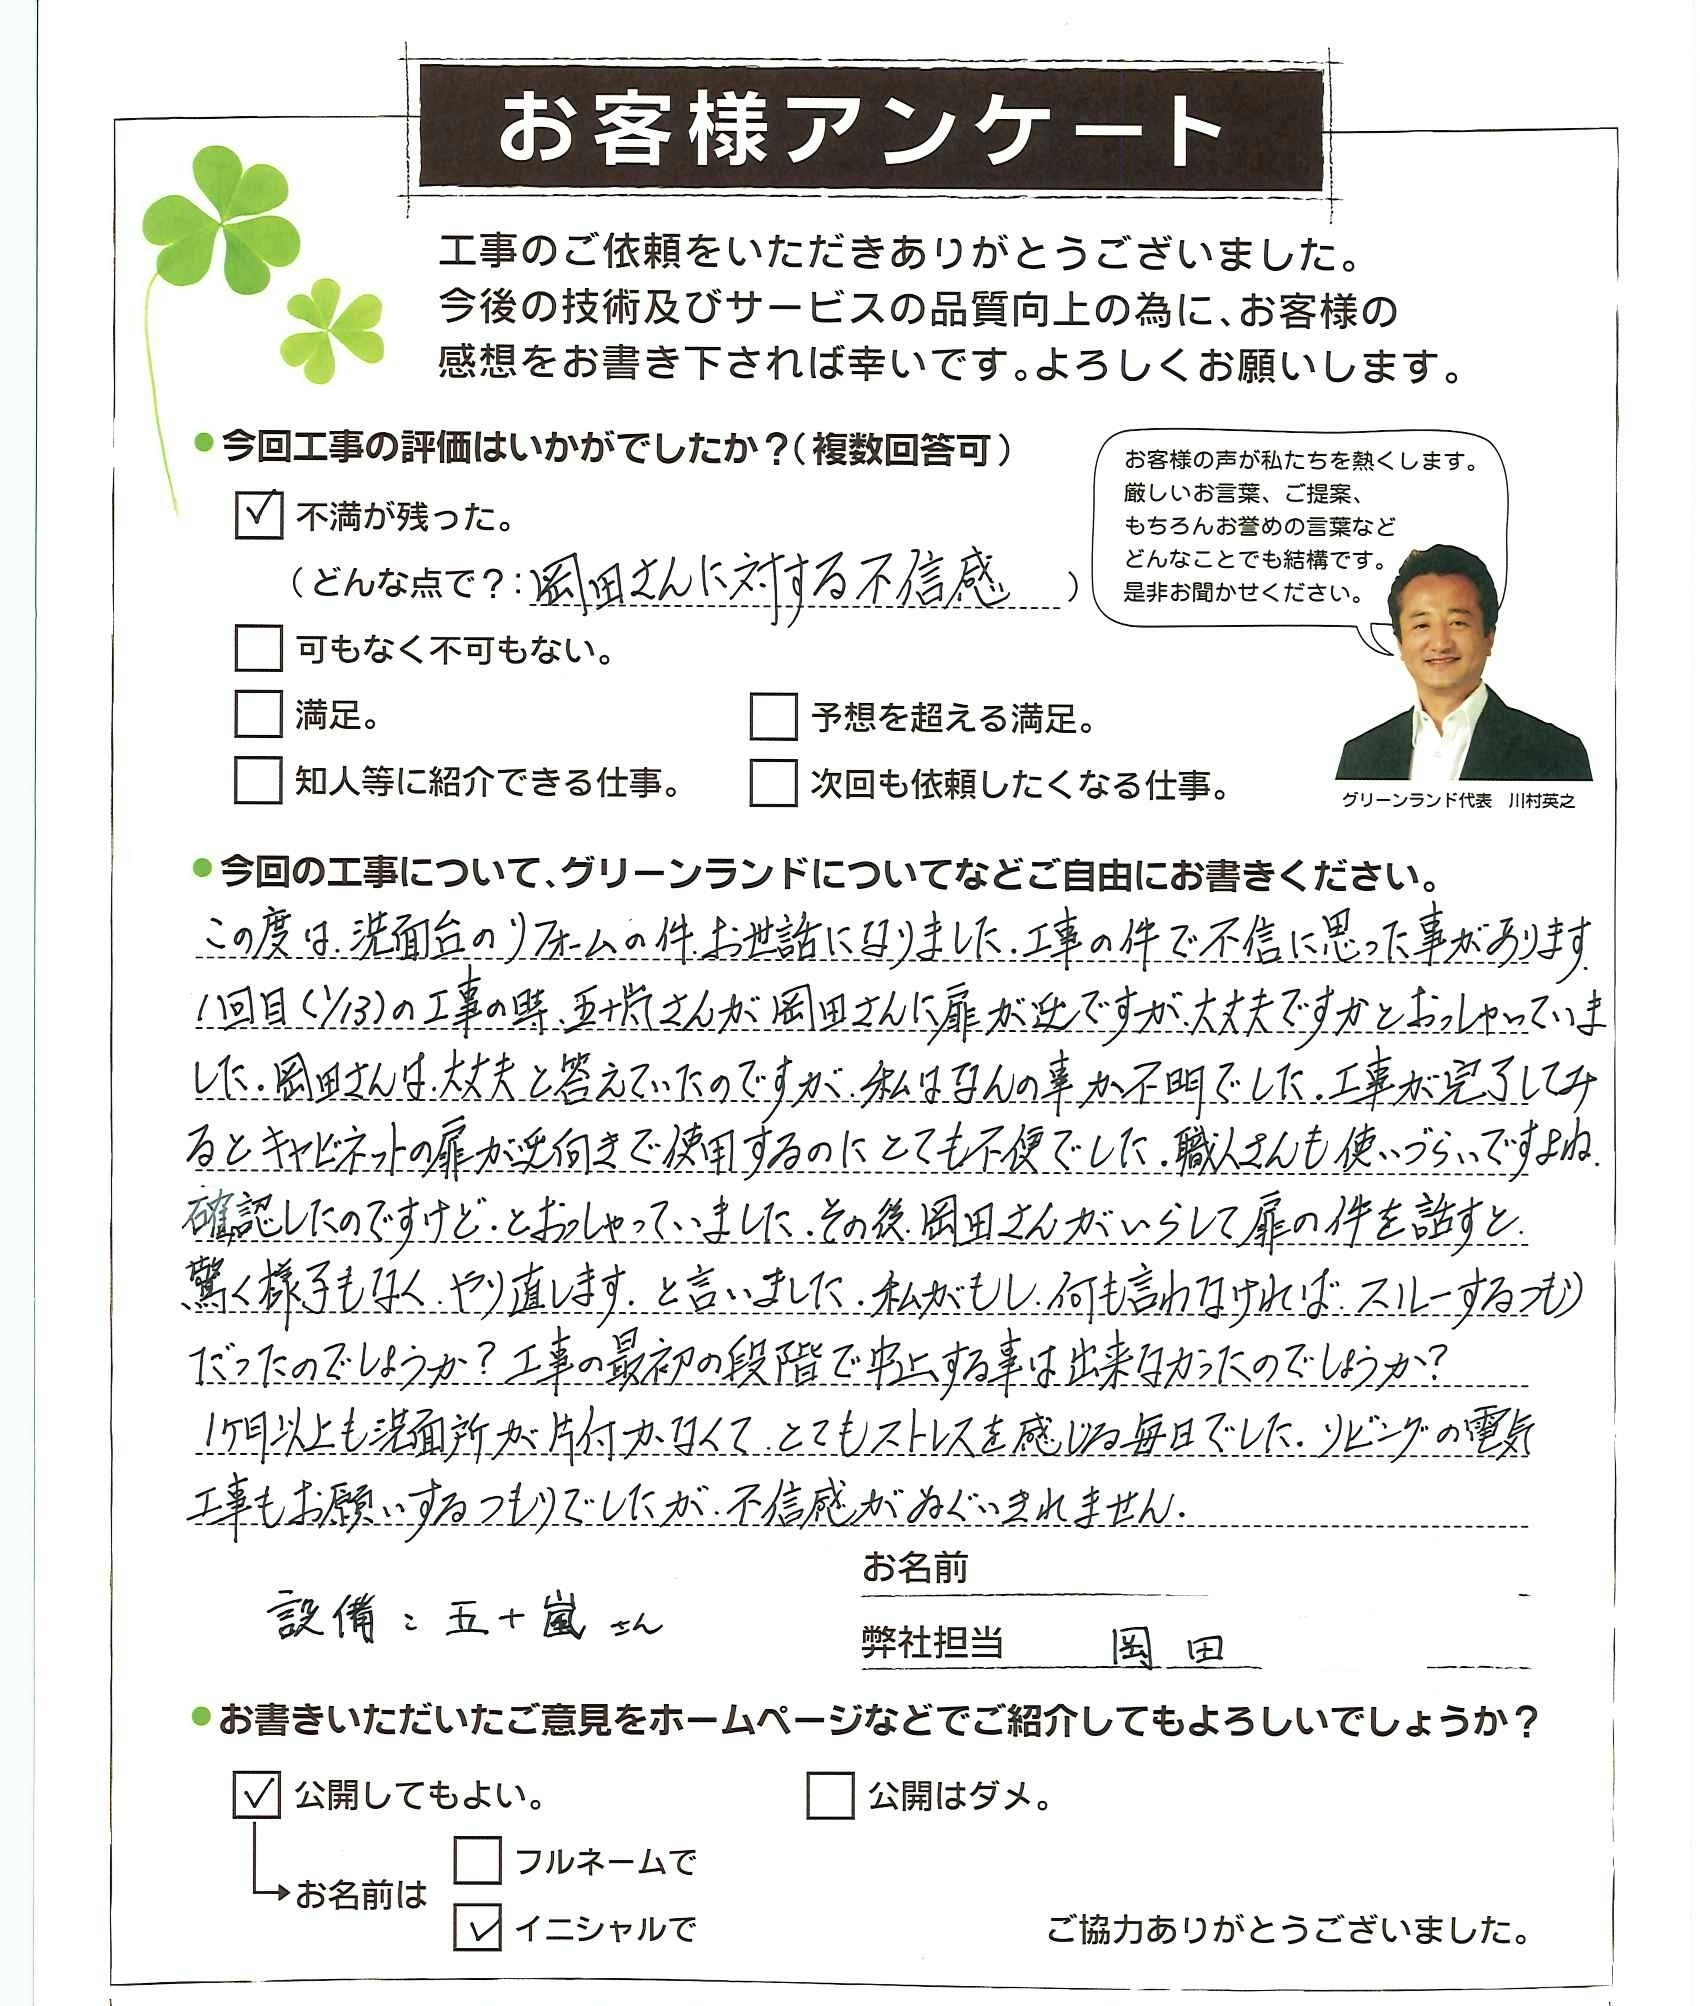 お客様アンケート
工事のご依頼をいただきありがとうございました。
今後の技術及びサービスの品質向上の為に、お客様の
感想をお書き下されば幸いです。よろしくお願いします。
●今回工事の評価はいかがでしたか？（複数回答可）
お客様の声が私たちを熱くします。
厳しいお言葉、ご提案、
もちろんお誉めの言葉など
どんなことでも結構です。
是非お聞かせください。
グリーンランド代表　川村英之
✓ 不満が残った。
（どんな点で？：岡田さんに対する不信感）
可もなく不可もない。
満足。
予想を超える満足。
知人等に紹介できる仕事。
次回も依頼したくなる仕事。
●今回の工事について、グリーンランドについてなどご自由にお書きください。
この度は、洗面台のリフォームの件、お世話になりました。工事の件で不信に思った事があります。
1回目（1/13）の工事の時、五十嵐さんが岡田さんに扉が逆ですが、大丈夫ですかとおっしゃっていま
した。岡田さんは、大丈夫と答えていたのですが、私はなんの事か不明でした。工事が完了してみ
るとキャビネットの扉が逆向きで使用するのにとても不便でした。職人さんも使いづらいですよね、
確認したのですけど、とおっしゃっていました。その後、岡田さんがいらして扉の件を話すと、
驚く様子もなく、やり直します、と言いました。私がもし、何も言わなければ、スルーするつもり
だったのでしょうか？工事の最初の段階で中止する事は出来なかったのでしょうか？
1ヶ月以上も洗面所が片付かなくて、とてもストレスを感じる毎日でした。リビングの電気
工事もお願いするつもりでしたが、不信感がぬぐいきれません。
お名前
設備：五十嵐さん
弊社担当　岡田
●お書きいただいたご意見をホームページなどでご紹介してもよろしいでしょうか？
✓ 公開してもよい。
公開はダメ。
フルネームで
お名前は
✓ イニシャルで
ご協力ありがとうございました。